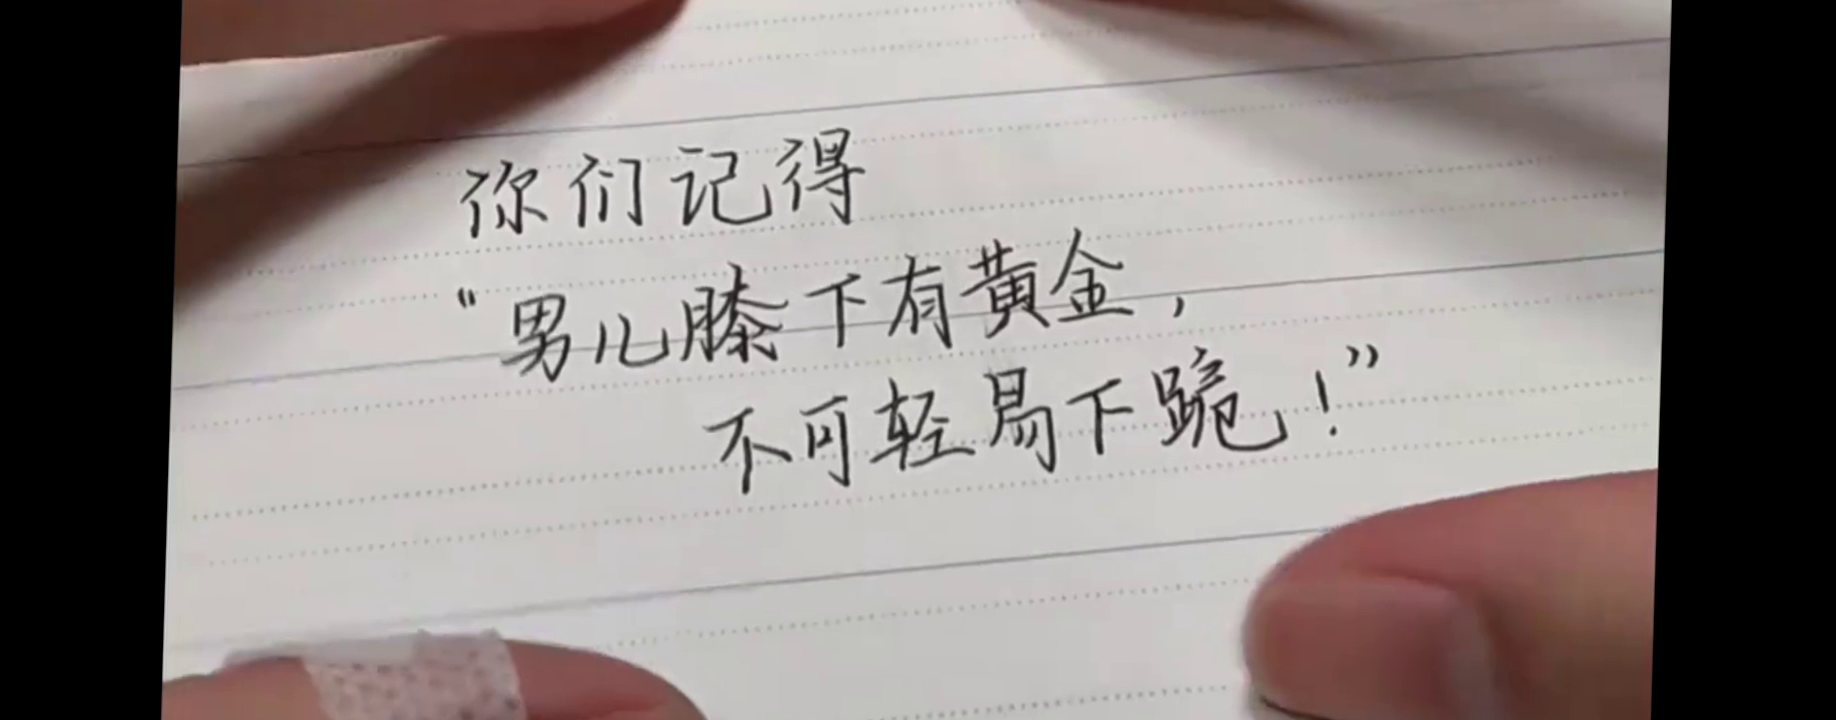 你们记得
“男儿膝下有黄金，
不可轻易下跪！”